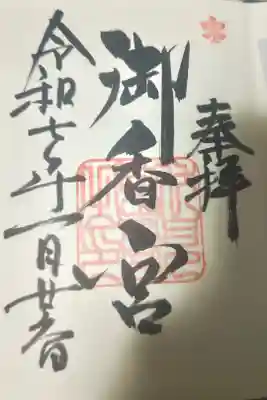 奉拝
御香宮
令和七年一月廿五日